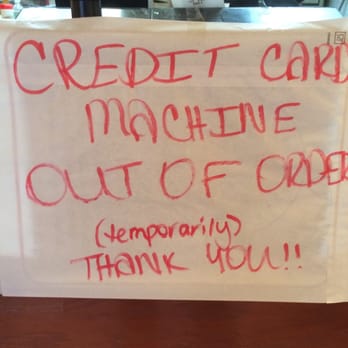 CREDIT CARD
MACHINE
OUT OF ORDER
(temporarily)
THANK YOU!!